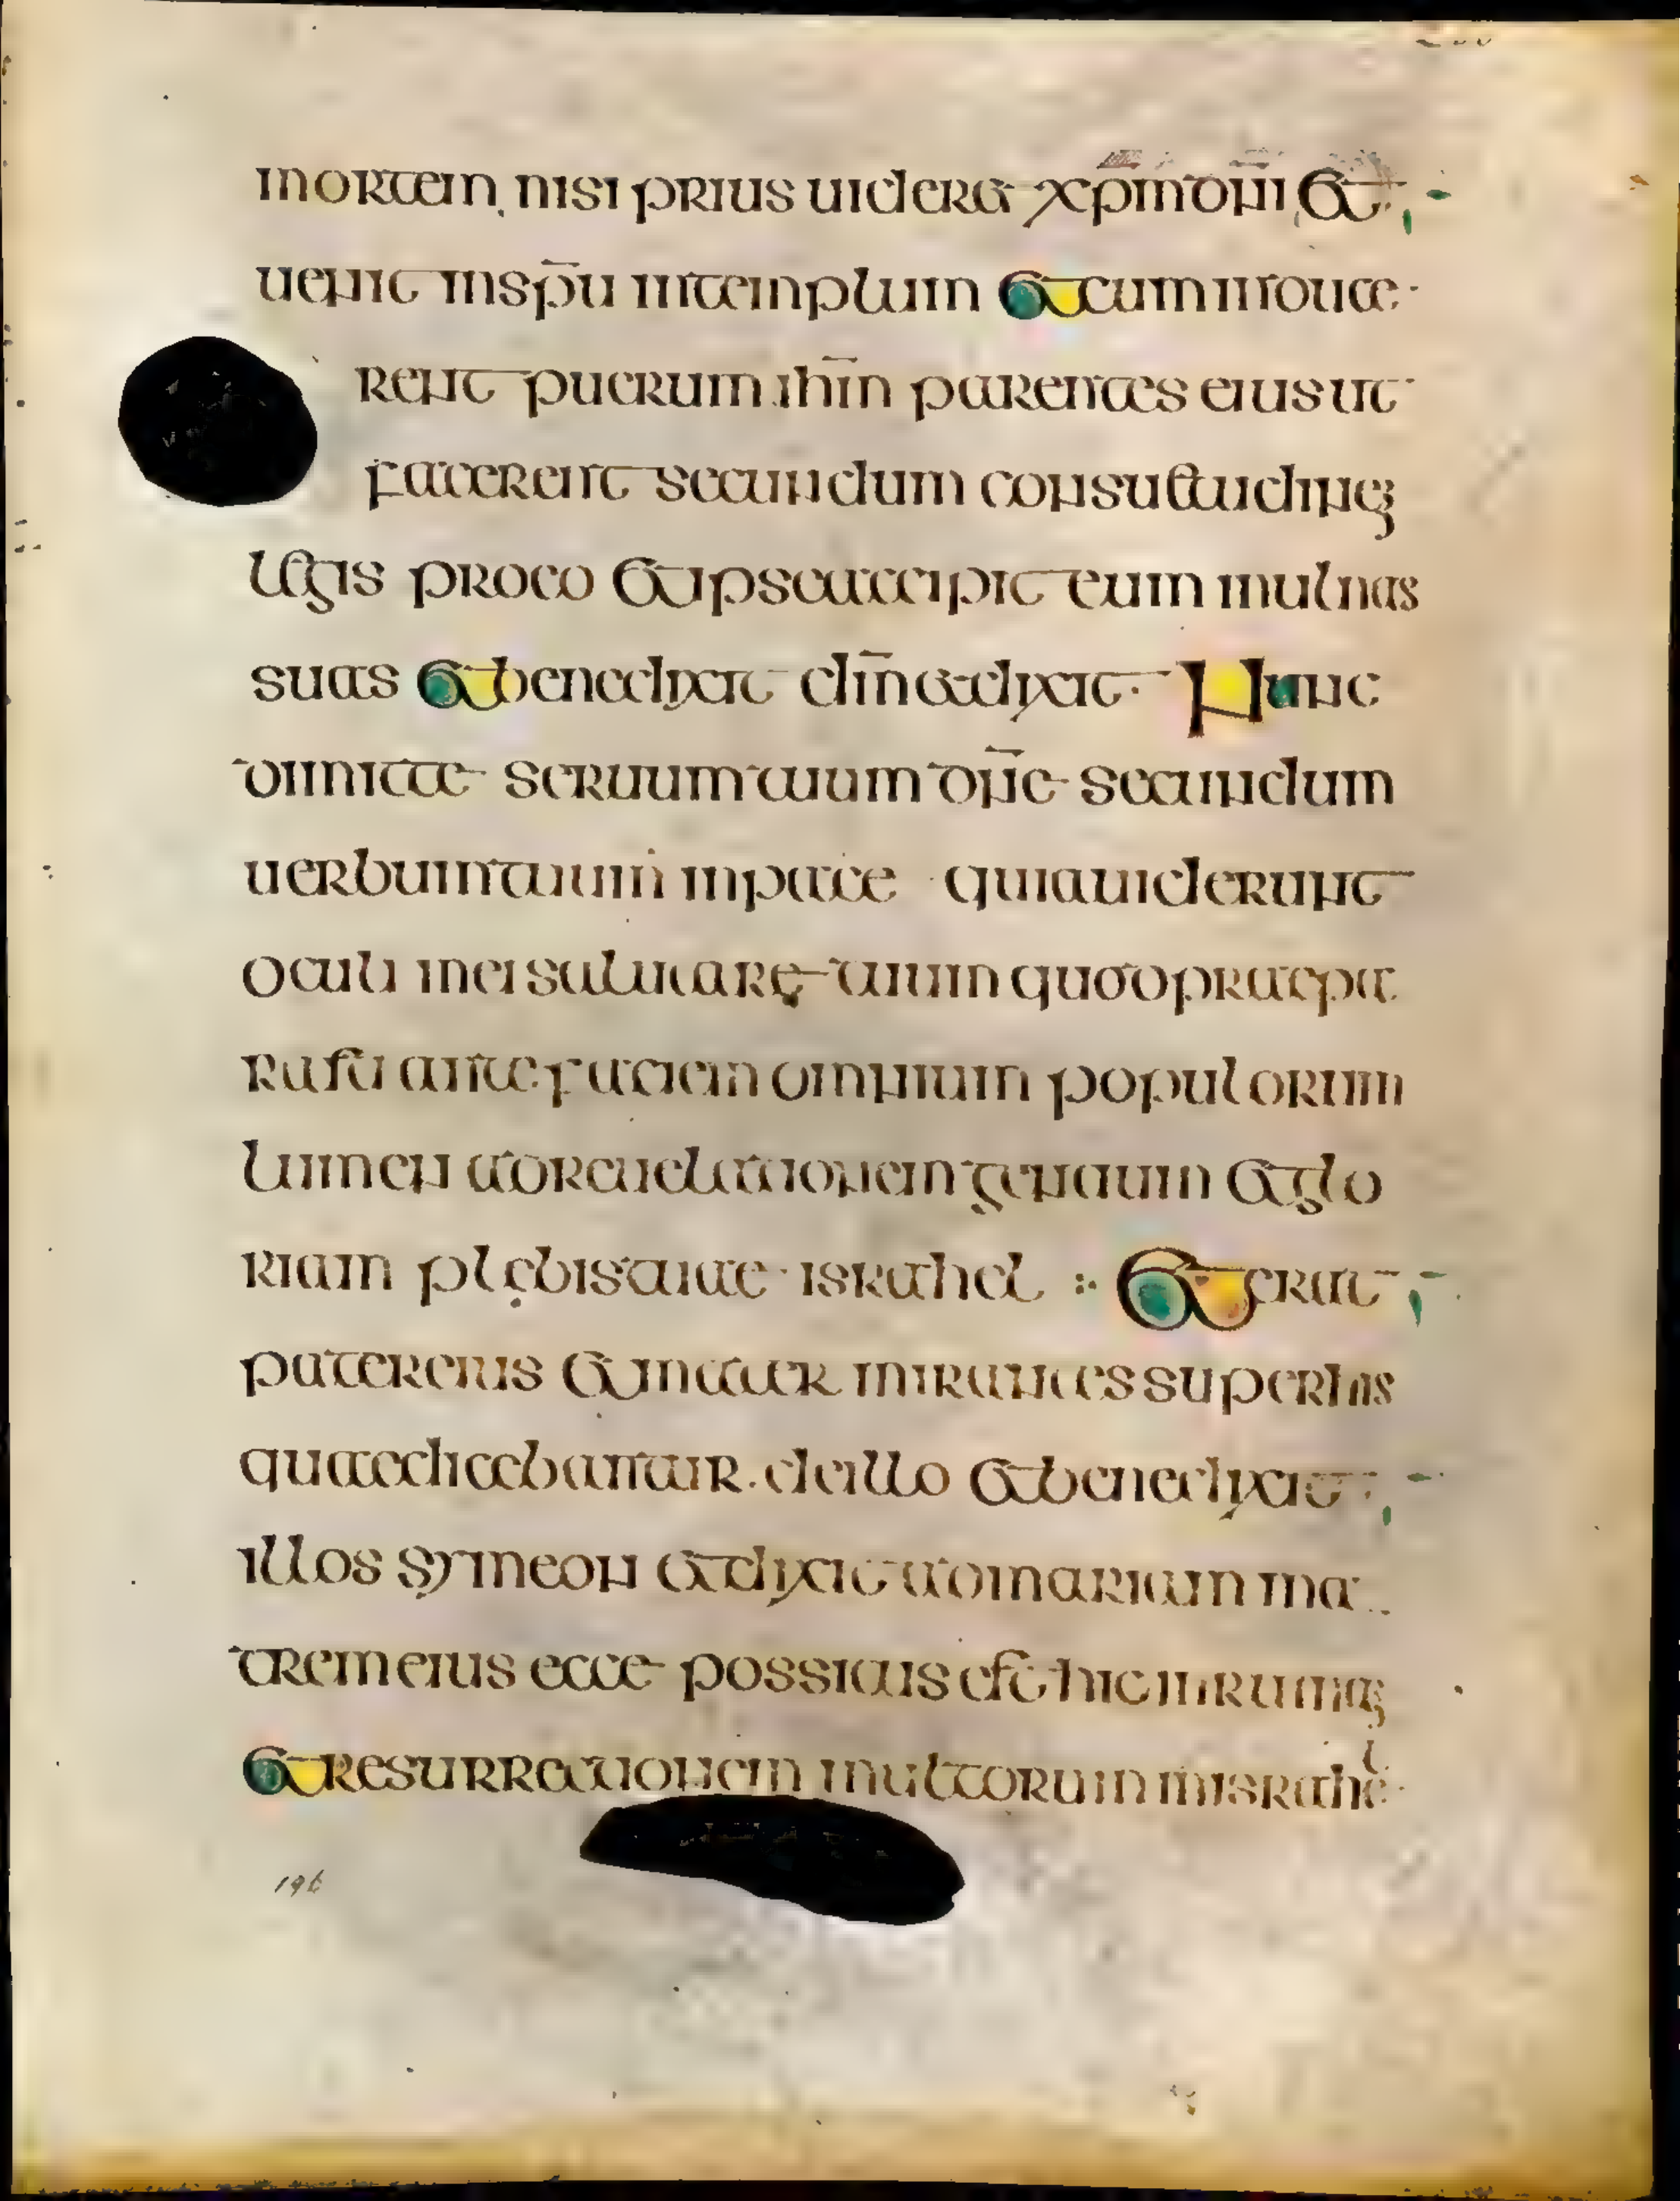 mortem nisi prius uideret xp̄m dn̄i Et
uenit in sp̄u in templum Et cum induce
rent puerum ih̄m parentes eius ut
facerent secundum consuetudinē
legis pro eo Et ipse accipit eum in ulnas
suas Et benedixit dm̄ et dixit. Nunc
dimitte seruum tuum dn̄e secundum
uerbum tuum in pace quia uiderunt
oculi mei salutare tuum quod praepa
rasti ante faciem omnium populorum
lumen ad reuelationem gentium et glo
riam plebis tuae israhel : Et erat
pater eius et mater mirantes super his
quae dicebantur. de illo et benedixit
illos symeon et dixit ad mariam ma
trem eius ecce possitus est hic in ruinā
Et resurrectionem multorum in israhel
196